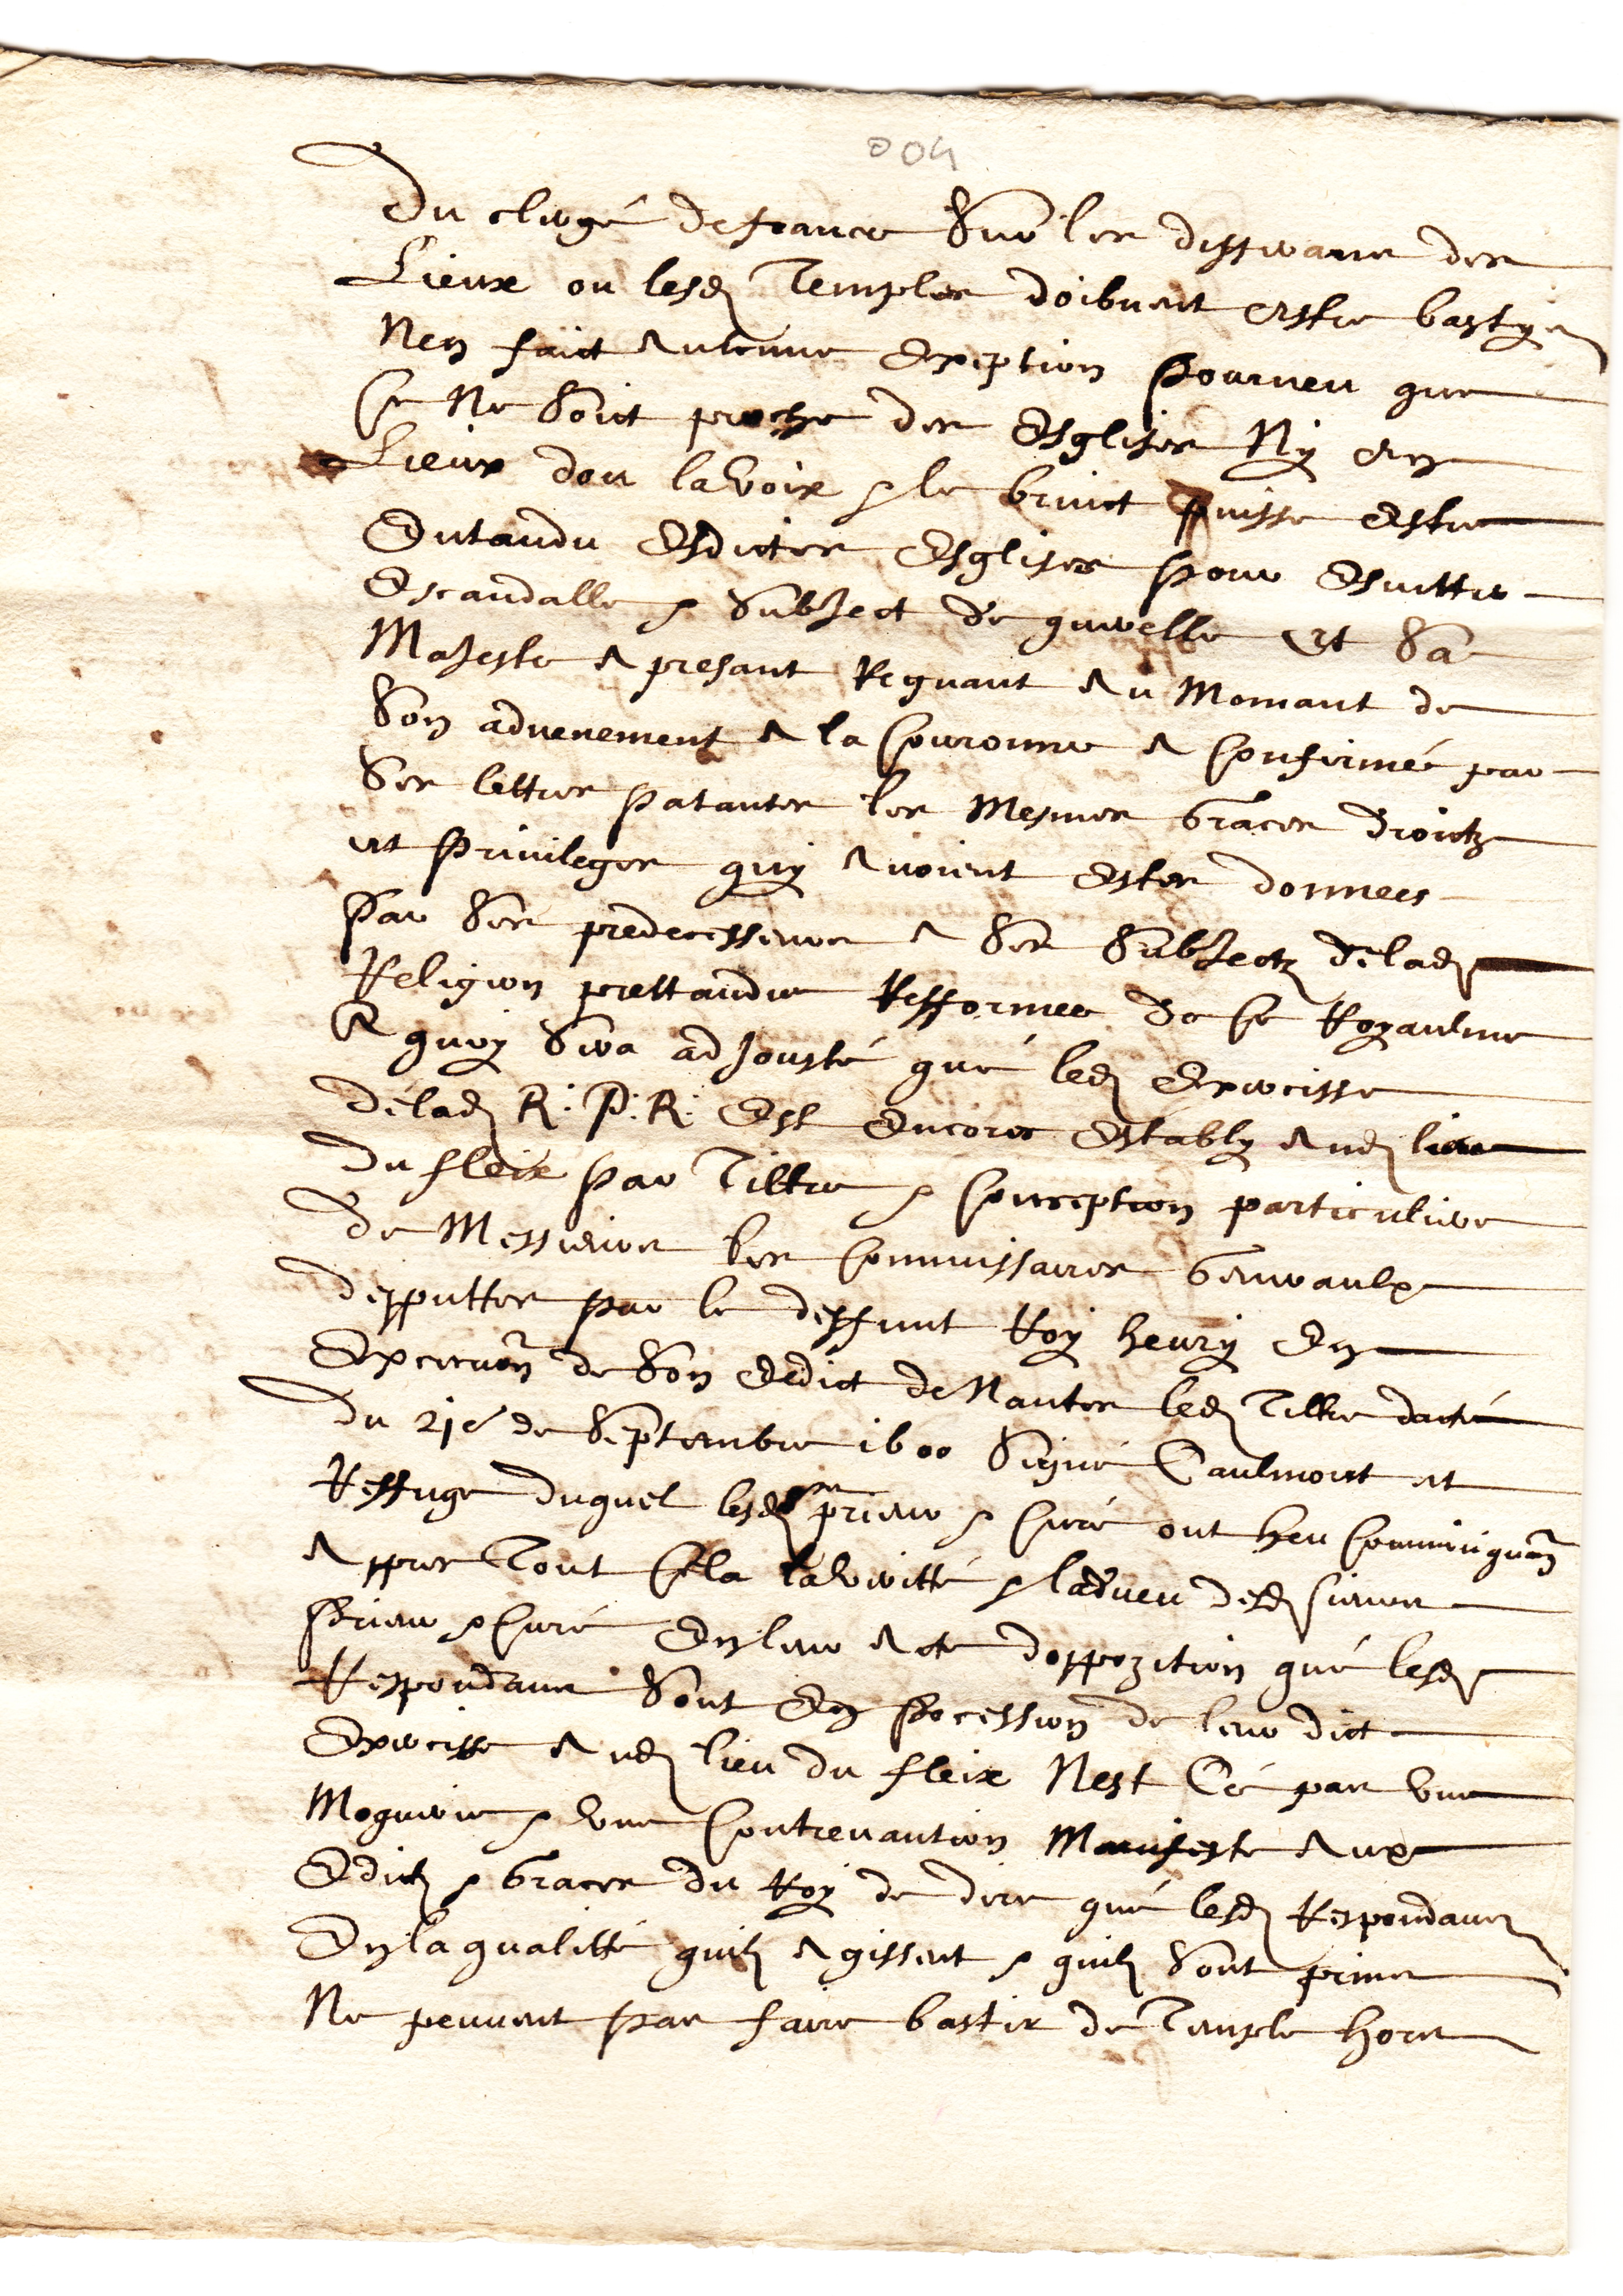 004
Du clergé de france Sur les differans des
Lieux ou lesd Temples doibvent estre bastys
Nen faict Aulcune Exeption pourveu que
Ce Ne Soict proche des Esglises Ny en
Lieux dou la Voix & le bruict puisse Estre
Entandu Esdictes Esglises pour Esvitter
Escandalle & SubJect de querelle Et Sa
MaJeste A presant Regnant Au Momant de
Son advenement A la Couronne A Confirmé par
Ses lettres patantes les Mesmes Graces droictz
et Privileges quy Avoient Estes donnees
Par Ses predecesseurs A Ses SubJectz de lad
Religion prettandue Refformee De Ce Royaulme
A quoy Sera adJousté qué led Exercisse
dé lad R. P. R. Est Encores Estably Aud lieu
Du fleix par Tiltre & Conception particuliere
De Messieurs les Commissaires Generaulx
depputtes par le deffunt Roy henry En
Execuon de Son Eedict de Nantes led Tiltre datté
Du 21e de Septembre 1600 Signé Caulmont et
Reffuge duquel lesd prieur & Curé ont heu Comminiquaon
Appres Tout Cela la Veritté & ladveu desd sieurs
Prieur & Curé En leur Acte doppozition qué lesd
Respondans Sont En Pocession de leur dict
Exercisse Aud lieu du fleix Nest Cé pas une
Moquerie & Une Contrevantion Manifeste Aux
Edictz & Graces du Roy de dire qué lesd Respondans
En la qualitté quilz Agissent & quilz Sont prins
Ne peuvent pas faire bastir de Temple hors